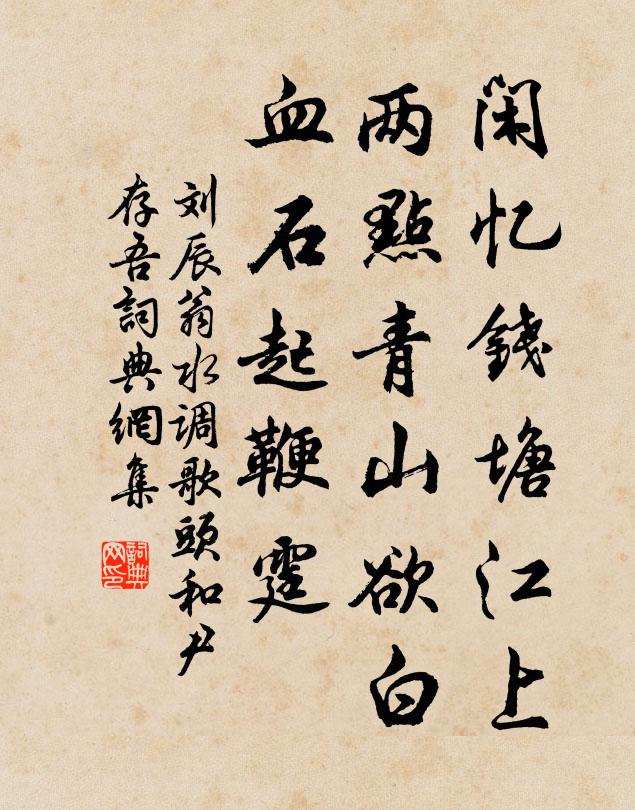 闲忆錢塘江上
两點青山欲白
血石起鞭霆
刘辰翁水调歌頭和尹
存吾詞典網集
詞典网印